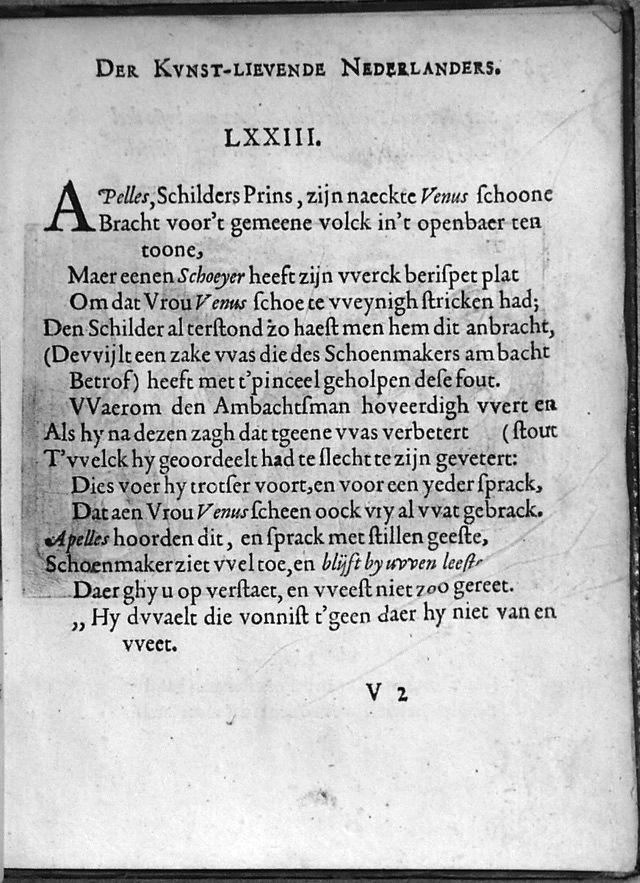 DER KVNST-LIEVENDE NEDERLANDERS.
LXXIII.
APelles, Schilders Prins, zijn naeckte Venus schoone
Bracht voor't gemeene volck in't openbaer ten
toone,
Maer eenen Schoeyer heeft zijn vverck berispet plat
Om dat Vrou Venus schoe te vveynigh stricken had;
Den Schilder al terstond zo haest men hem dit anbracht,
(Devvijlt een zake vvas die des Schoenmakers ambacht
Betrof) heeft met t'pinceel geholpen dese fout.
VVaerom den Ambachtsman hoveerdigh vvert en
Als hy na dezen zagh dat tgeene vvas verbetert (stout
T'vvelck hy geoordeelt had te slecht te zijn gevetert:
Dies voer hy trotser voort, en voor een yeder sprack,
Dat aen Vrou Venus scheen oock vry al vvat gebrack.
Apelles hoorden dit, en sprack met stillen geeste,
Schoenmaker ziet vvel toe, en blijft by uvven leeste
Daer ghy u op verstaet, en vveest niet zoo gereet.
,, Hy dvvaelt die vonnist t'geen daer hy niet van en
vveet.
V 2